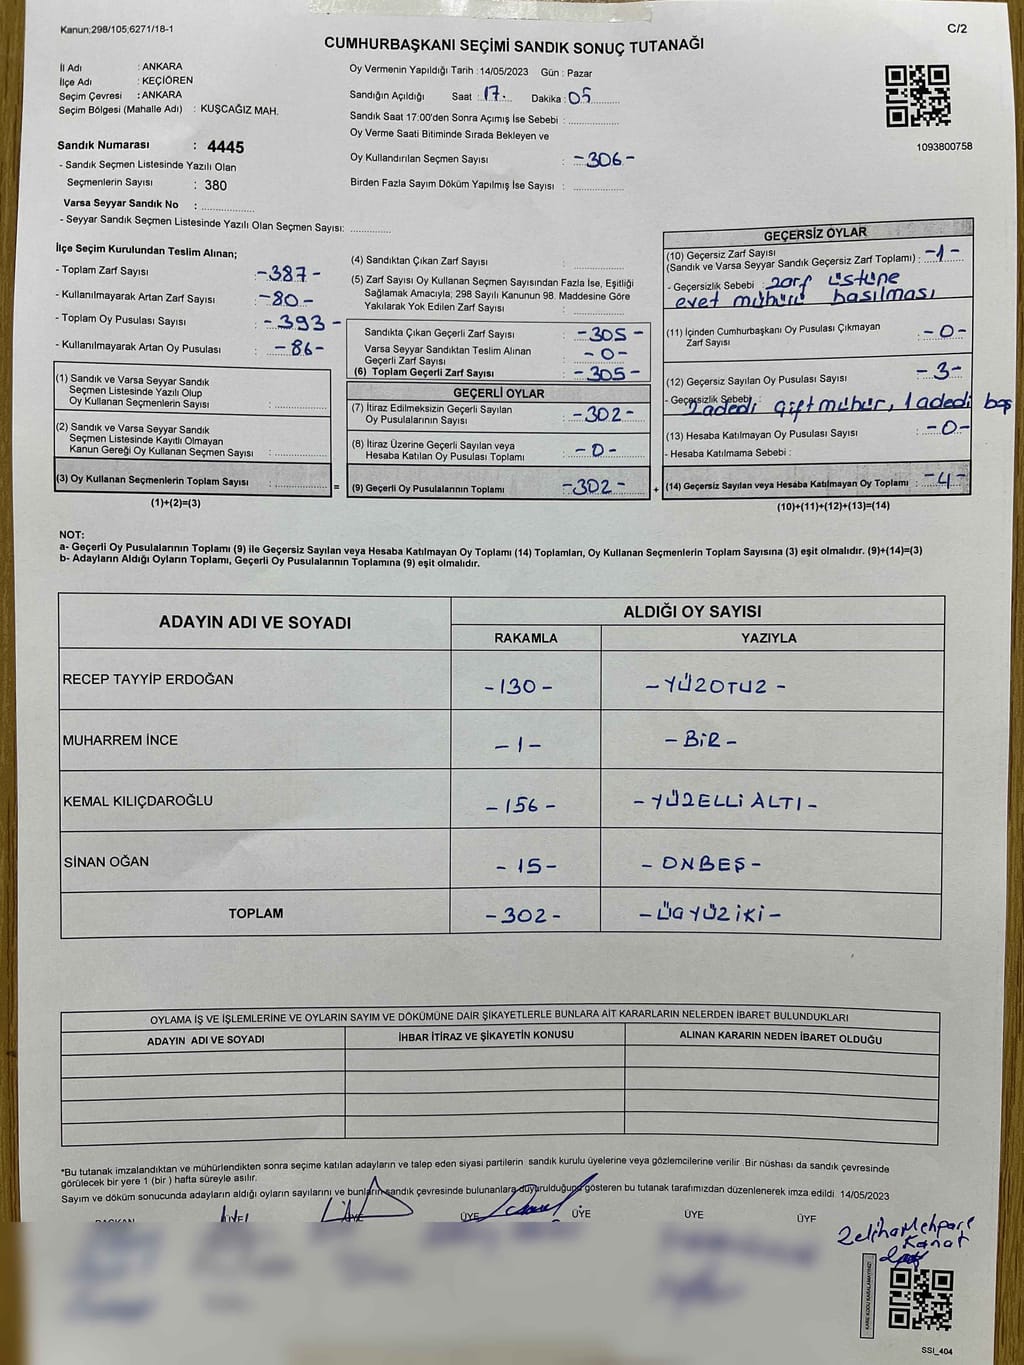 Kanun;298/105;6271/18-1
C/2
CUMHURBAŞKANI SEÇİMİ SANDIK SONUÇ TUTANAĞI
İl Adı : ANKARA
İlçe Adı : KEÇİÖREN
Seçim Çevresi : ANKARA
Seçim Bölgesi (Mahalle Adı) : KUŞCAĞIZ MAH.
Sandık Numarası : 4445
- Sandık Seçmen Listesinde Yazılı Olan
Seçmenlerin Sayısı : 380
Varsa Seyyar Sandık No : ................
- Seyyar Sandık Seçmen Listesinde Yazılı Olan Seçmen Sayısı: .............
Oy Vermenin Yapıldığı Tarih :14/05/2023 Gün : Pazar
Sandığın Açıldığı Saat : 17. Dakika : 05
Sandık Saat 17:00'den Sonra Açımış İse Sebebi : ...............
Oy Verme Saati Bitiminde Sırada Bekleyen ve
Oy Kullandırılan Seçmen Sayısı : -306-
Birden Fazla Sayım Döküm Yapılmış İse Sayısı : ...............
1093800758
İlçe Seçim Kurulundan Teslim Alınan;
- Toplam Zarf Sayısı : -387-
- Kullanılmayarak Artan Zarf Sayısı : -80-
- Toplam Oy Pusulası Sayısı : -393-
- Kullanılmayarak Artan Oy Pusulası : -86-
(1) Sandık ve Varsa Seyyar Sandık
Seçmen Listesinde Yazılı Olup
Oy Kullanan Seçmenlerin Sayısı : ...............
(2) Sandık ve Varsa Seyyar Sandık
Seçmen Listesinde Kayıtlı Olmayan
Kanun Gereği Oy Kullanan Seçmen Sayısı : ...............
(3) Oy Kullanan Seçmenlerin Toplam Sayısı : ............... =
(1)+(2)=(3)
(4) Sandıktan Çıkan Zarf Sayısı : ...............
(5) Zarf Sayısı Oy Kullanan Seçmen Sayısından Fazla İse, Eşitliği
Sağlamak Amacıyla; 298 Sayılı Kanunun 98. Maddesine Göre
Yakılarak Yok Edilen Zarf Sayısı : ...............
Sandıkta Çıkan Geçerli Zarf Sayısı : -305-
Varsa Seyyar Sandıktan Teslim Alınan
Geçerli Zarf Sayısı : -0-
(6) Toplam Geçerli Zarf Sayısı : -305-
GEÇERLİ OYLAR
(7) İtiraz Edilmeksizin Geçerli Sayılan
Oy Pusulalarının Sayısı : -302-
(8) İtiraz Üzerine Geçerli Sayılan veya
Hesaba Katılan Oy Pusulası Toplamı : -0-
(9) Geçerli Oy Pusulalarının Toplamı : -302- +
GEÇERSİZ OYLAR
(10) Geçersiz Zarf Sayısı
(Sandık ve Varsa Seyyar Sandık Geçersiz Zarf Toplamı) : -1-
- Geçersizlik Sebebi : zarf üstüne
evet mühürü basılması
(11) İçinden Cumhurbaşkanı Oy Pusulası Çıkmayan
Zarf Sayısı : -0-
(12) Geçersiz Sayılan Oy Pusulası Sayısı : -3-
- Geçersizlik Sebebi : 2 adedi çift mühür, 1 adedi boş
(13) Hesaba Katılmayan Oy Pusulası Sayısı : -0-
- Hesaba Katılmama Sebebi :
(14) Geçersiz Sayılan veya Hesaba Katılmayan Oy Toplamı : -4-
(10)+(11)+(12)+(13)=(14)
NOT:
a- Geçerli Oy Pusulalarının Toplamı (9) ile Geçersiz Sayılan veya Hesaba Katılmayan Oy Toplamı (14) Toplamları, Oy Kullanan Seçmenlerin Toplam Sayısına (3) eşit olmalıdır. (9)+(14)=(3)
b- Adayların Aldığı Oyların Toplamı, Geçerli Oy Pusulalarının Toplamına (9) eşit olmalıdır.
ADAYIN ADI VE SOYADI ALDIĞI OY SAYISI
RAKAMLA YAZIYLA
RECEP TAYYİP ERDOĞAN -130- -YÜZOTUZ-
MUHARREM İNCE -1- -BİR-
KEMAL KILIÇDAROĞLU -156- -YÜZELLİ ALTI-
SİNAN OĞAN -15- -ONBEŞ-
TOPLAM -302- -ÜÇYÜZ İKİ-
OYLAMA İŞ VE İŞLEMLERİNE VE OYLARIN SAYIM VE DÖKÜMÜNE DAİR ŞİKAYETLERLE BUNLARA AİT KARARLARIN NELERDEN İBARET BULUNDUKLARI
ADAYIN ADI VE SOYADI İHBAR İTİRAZ VE ŞİKAYETİN KONUSU ALINAN KARARIN NEDEN İBARET OLDUĞU
*Bu tutanak imzalandıktan ve mühürlendikten sonra seçime katılan adayların ve talep eden siyasi partilerin sandık kurulu üyelerine veya gözlemcilerine verilir .Bir nüshası da sandık çevresinde
görülecek bir yere 1 (bir ) hafta süreyle asılır.
Sayım ve döküm sonucunda adayların aldığı oyların sayılarını ve bunların sandık çevresinde bulunanlara duyurulduğunu gösteren bu tutanak tarafımızdan düzenlenerek imza edildi 14/05/2023
BAŞKAN ÜYE ÜYE ÜYE ÜYE ÜYE ÜYE
Zeliha Mehpare
Kanat
KARE KODU KARALAMAYINIZ!
SSI_404